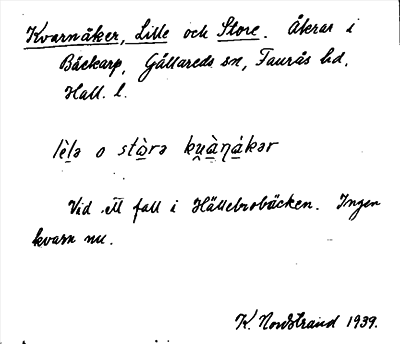 Kvarnåker, Lille och Store. Åkrar i
Bäckarp, Gällareds sn, Faurås hd,
Hall. l.
lèlə o stòrə ku̯àɳákər
Vid ett fall i Hällebrobäcken. Ingen
kvarn nu.
K. Nordstrand 1939.